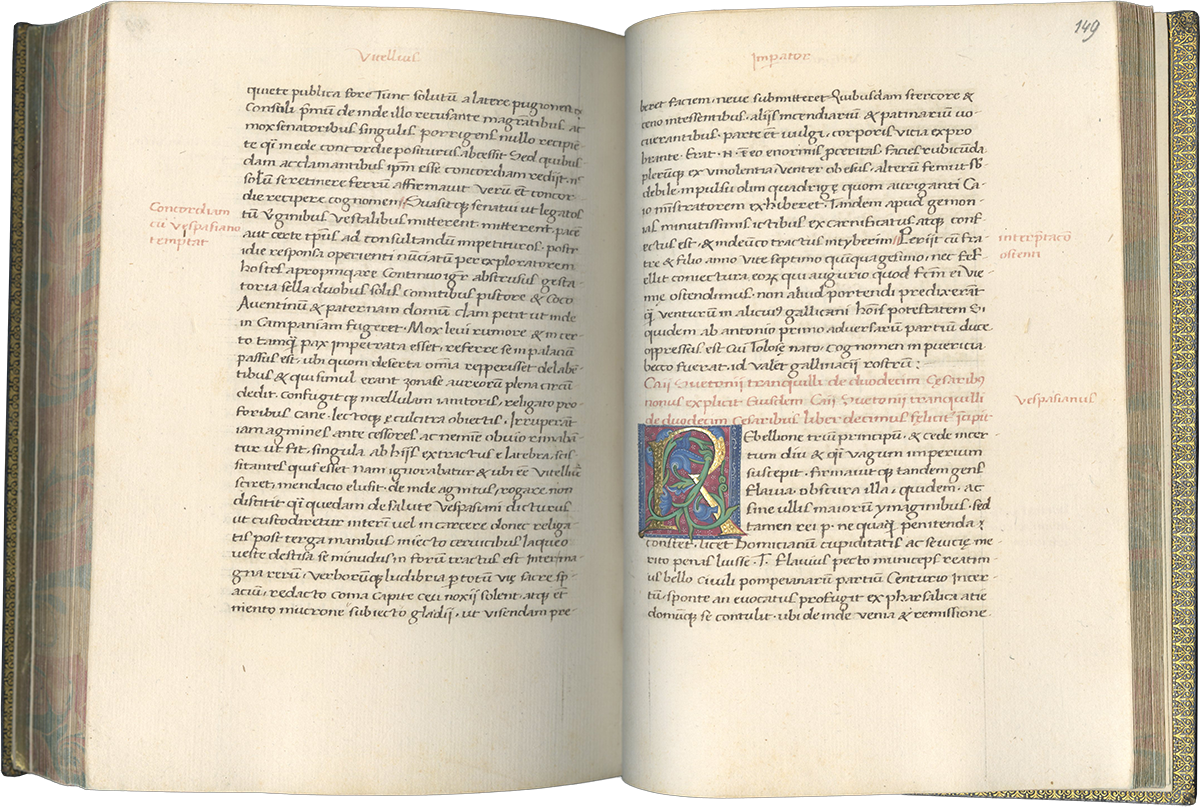 Vitellius
quiete publica fore Tunc solutū a latere pugionem
Consuli p̄mū de inde illo recusante magratibus ac
mox senatoribus singulis porrigens nullo recipiē-
te q̄i in ede concordie positurus abcessit Sed quibus-
dam acclamantibus ip̄m esse concordiam redijt
solūm se retinere ferrū affirmauit Verū et concor-
die recipere cognomen Suasit qȝ senatui ut legatos
Concordiam
cū Vespasiano
temptat
tū Vginibus Vestalibus mitterent pacē
aut certe tp̄us ad consultandum impetituros postr-
idie responsa operienti nūciatū per exploratorem
hostes apropinqare Continuo igr̄ abstrusus gesta-
toria sella duobus solis comitibus pistore & Coco
Auentinū & paternam domū clam petit ut inde
in Campaniam fugeret · Mox leui rumore & incer-
to tamq̄ pax impetrata esset, referre se in palaciū
passus est, ubi quom deserta om̄ia repperusset delabē-
tibus & qui simul erant zona se aureorum plena circū
dedit · confugit qȝ in cellulam ianitoris, religato pro-
foribus Cane · lecto qȝ & culcitra obiectis · Irruperāt
iam agmines ante cessores ac nemīe obuio rimabā-
tur ut fit, singula · ab hijs extractus e latebra, scis-
sitantes quis esset nam ignorabatur & ubi eē Vitelliū
sciret, mendacio elusit · de inde agnitus, rogare non
distitit q̄i quedam de salute Vespasiani dicturus
ut custodiretur interī uel in carcere donec religa-
tis post terga manibus iniecto ceruicibus laqueo
ueste destisa seminudus in forū tractus est Inter ma-
gna rerū, verborūqȝ ludibria p totū vię sacre sp̄-
aciū, redacto coma Capite ceu noxij solent, atqȝ et
mento mucrone subiecto gladij, ut uisendam pre-
149
Impator
beret faciem, neue submitteret Quibusdam stercore &
ceno incessentibus, alijs incendiariū & patinariū uo-
ciferantibus · parte et uulgi, corporis uicia expro
brante · Erat · N · ī eo enormis p̄ceritas facies rubicūda
plerūqȝ ex uinolentia Venter obesus, alterū femur sb
debile impulsu olim quadrigę quom auriganti Ca-
io ministratorem exhiberet · Tandem apud gemon-
ias minutissimis ictibus excarnificatus atqȝ conf-
ectus est · & inde unco tractus in tyberim Perijt cū fra-
tre & filio anno Vite septimo quinquagesimo, nec fef-
interp̄tacō
ostenti
ellit coniectura eoꝝ qui augurio quod fc̄m ei Vie-
nne ostendimus · non aliud portendi predixerāt
q̄ uenturum in alicuiȝ gallicani hōis potestatem Si
quidem ab antonio primo aduersariū partiū duce
oppressus est Cui Tolose nato cognomen in puericia
becco fuerat, id valet gallinacij rostrū :
Caii Suetonii tranquilli de duodecim Cesaribȝ
nonus explicit Eiusdem Caii Suetonii tranquilli
de duodecim Cesaribus liber decimus felicit̄ īcipit
Vespasianus
REbellione triū principū · & cede incer-
tum diu & q̄i vagum imperium
suscepit · firmauit qȝ tandem gens
flauia, obscura illa, quidem, ac
sine ullis maiorū ymaginibus, sed
tamen rei p · ne quaq̄ penitenda ;
constet, licet Domicianū cupiditatis ac seuicię me-
rito penas luisse · T · flauius pecto municeps reatim
us bello Ciuili pompeianarū partiū Centurio Incer-
tū, sponte an euocatus profugit ex pharsalica atie
domūqȝ se contulit · ubi de inde uenia & remissione